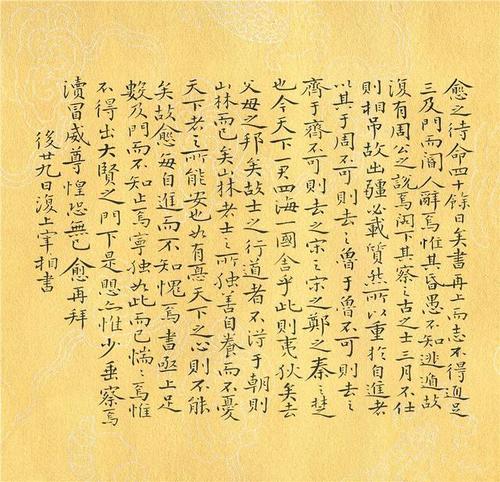 愈之待命四十餘日矣書再上而志不得通足
三及門而閽人辭焉惟其昏愚不知逃遁故
復有周公之說焉閣下其察之古之士三月不仕
則相弔故出疆必載質然所以重於自進者
以其于周不可則去之魯于魯不可則去之
齊于齊不可則去之宋之宋之鄭之秦之楚
也今天下一君四海一國舍乎此則夷狄矣去
父母之邦矣故士之行道者不得于朝則
山林而已矣山林者士之所獨善自養而不憂
天下者之所能安也如有憂天下之心則不能
矣故愈每自進而不知愧焉書亟上足
數及門而不知止焉寧獨如此而已惴惴焉惟
不得出大賢之門下是愳亦惟少垂察焉
瀆冒威尊惶恐無已愈再拜
後廿九日復上宰相書